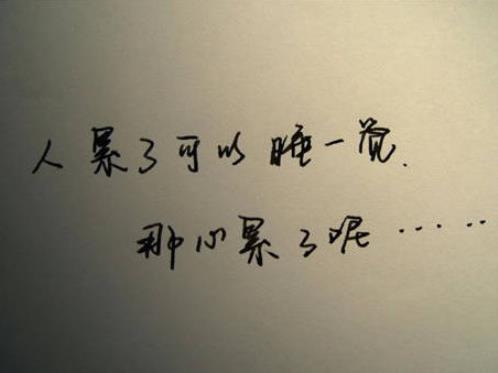 人累了可以睡一觉.
那心累了呢······